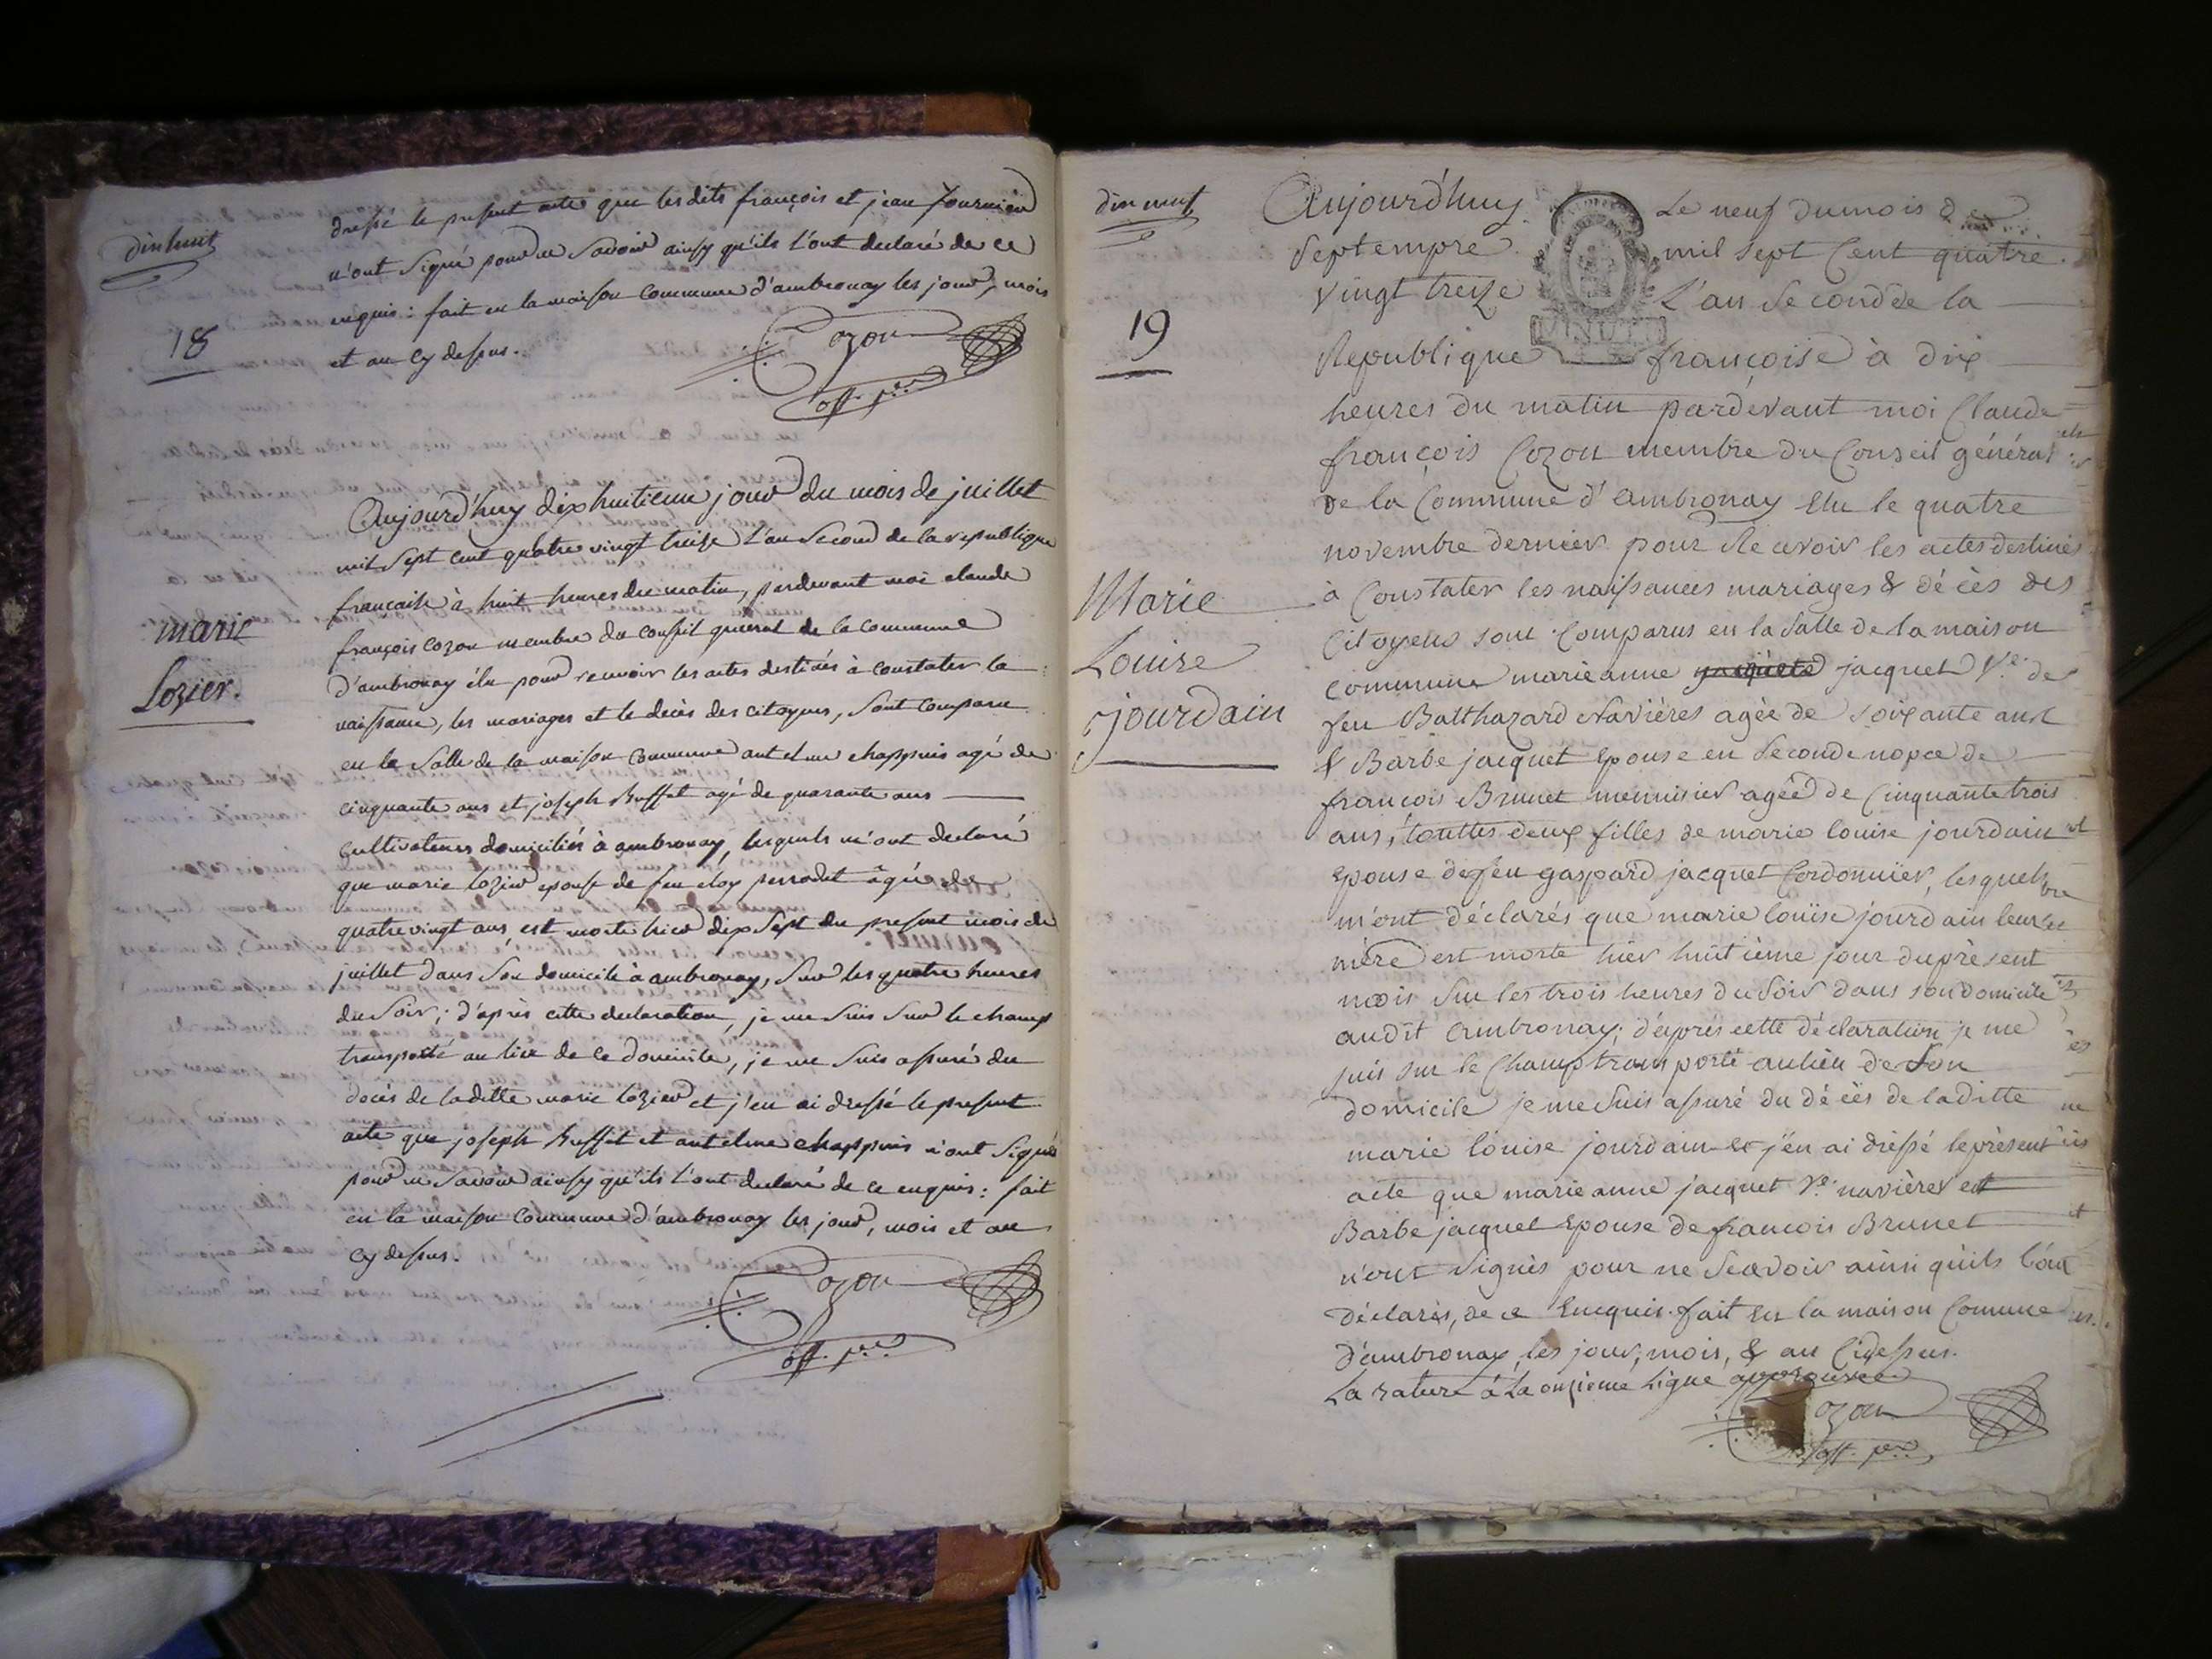 dix huit
18
dressé le present acte que les dits françois et jean fournier
n'ont signé pour ne savoir ainsy qu'ils l'ont declaré de ce
enquis : fait en la maison commune d'ambronay les jour, mois
et an cy dessus.
Cozon
off. p.er
Aujourd'huy dix huitieme jour du mois de juillet
mil sept cent quatre vingt treize l'an second de la republique
francaise à huit heures du matin, pardevant moi claude
françois Cozon membre du conseil general de la commune
d'ambronay élu pour recevoir les actes destinés à constater la
naissance, les mariages et le decès des citoyens, sont comparu
en la salle de la maison commune antelme chappuis agé de
cinquante ans et joseph Buffet agé de quarante ans
cultivateurs domiciliés à ambronay, lesquels m'ont declaré
que marie lozier epouse de feu eloy perrodet âgée de
quatre vingt ans, est morte hier dix sept du present mois de
juillet dans son domicile à ambronay, sur les quatre heures
du soir ; d'après cette declaration, je me suis sur le champ
transporté au lieu de ce domicile, je me suis assuré du
decès de laditte marie lozier et j'en ai dressé le present
acte que joseph buffet et antelme chappuis n'ont signé
pour ne savoir ainsy qu'ils l'ont declaré de ce enquis : fait
en la maison commune d'ambronay les jour, mois et an
cy dessus.
marie
Lozier.
Cozon
off. p.er
dix neuf
19
Aujourd'huy le neuf du mois de
Septempre mil sept Cent quatre
vingt treize L'an Second de la
Republique françoise à dix
heures du matin pardevant moi Claude
françois Cozon membre du Conseil général
de la Commune d'ambronay Elu le quatre
novembre dernier pour Recevoir les actes destinés
à Constater les naissances mariages & décès des
Citoyens sont Comparus en la Salle de la maison
commune marie anne jacquet V.e de
feu Balthazard Navières agée de soixante ans
& Barbe jacquet Epouse en Seconde nopce de
françois Brunet menuisier agée de Cinquante trois
ans, touttes deux filles de marie louise jourdain
Epouse de feu gaspard jacquet Cordonnier, lesquels
m'ont déclarés que marie louise jourdain leur
mère est morte hier huitième jour du présent
mois Sur les trois heures du Soir dans son domicile
audit ambronay ; d'après cette déclaration je me
suis sur le Champ transporté au lieu de Son
domicile je me Suis assuré du décès de laditte
marie louise jourdain & j'en ai dressé le présent
acte que marie anne jacquet V.e navières et
Barbe jacquet Epouse de françois Brunet
n'ont Signés pour ne Scavoir ainsi qu'ils l'ont
Déclarés, de ce Enquis. fait En la maison Comune
d'ambronay, les jour, mois, & an Cidessus.
La rature à la onzieme Ligne approuvée
Marie
Louise
jourdain
Cozon
off. p.er